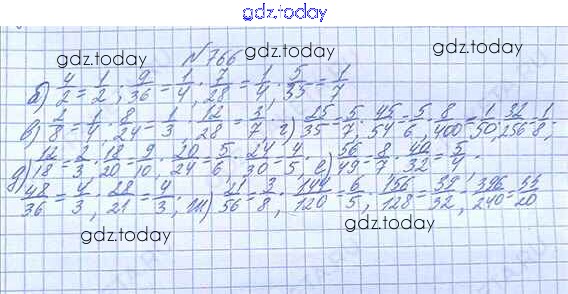 gdz.today
gdz.today gdz.today gdz.today
№766
б) 4/2 = 1/2; 9/36 = 1/4; 7/28 = 1/4; 5/35 = 1/7
в) 2/8 = 1/4; 8/24 = 1/3; 12/28 = 3/7 г) 25/35 = 5/7; 45/54 = 5/6; 8/400 = 1/50; 32/256 = 1/8;
д) 12/18 = 2/3; 18/20 = 9/10; 20/24 = 5/6; 24/30 = 4/5; е) 56/49 = 8/7; 40/32 = 5/4;
48/36 = 4/3; 28/21 = 4/3; ж) 21/56 = 3/8; 144/120 = 6/5; 156/128 = 39/32; 396/240 = 33/20
gdz.today gdz.today